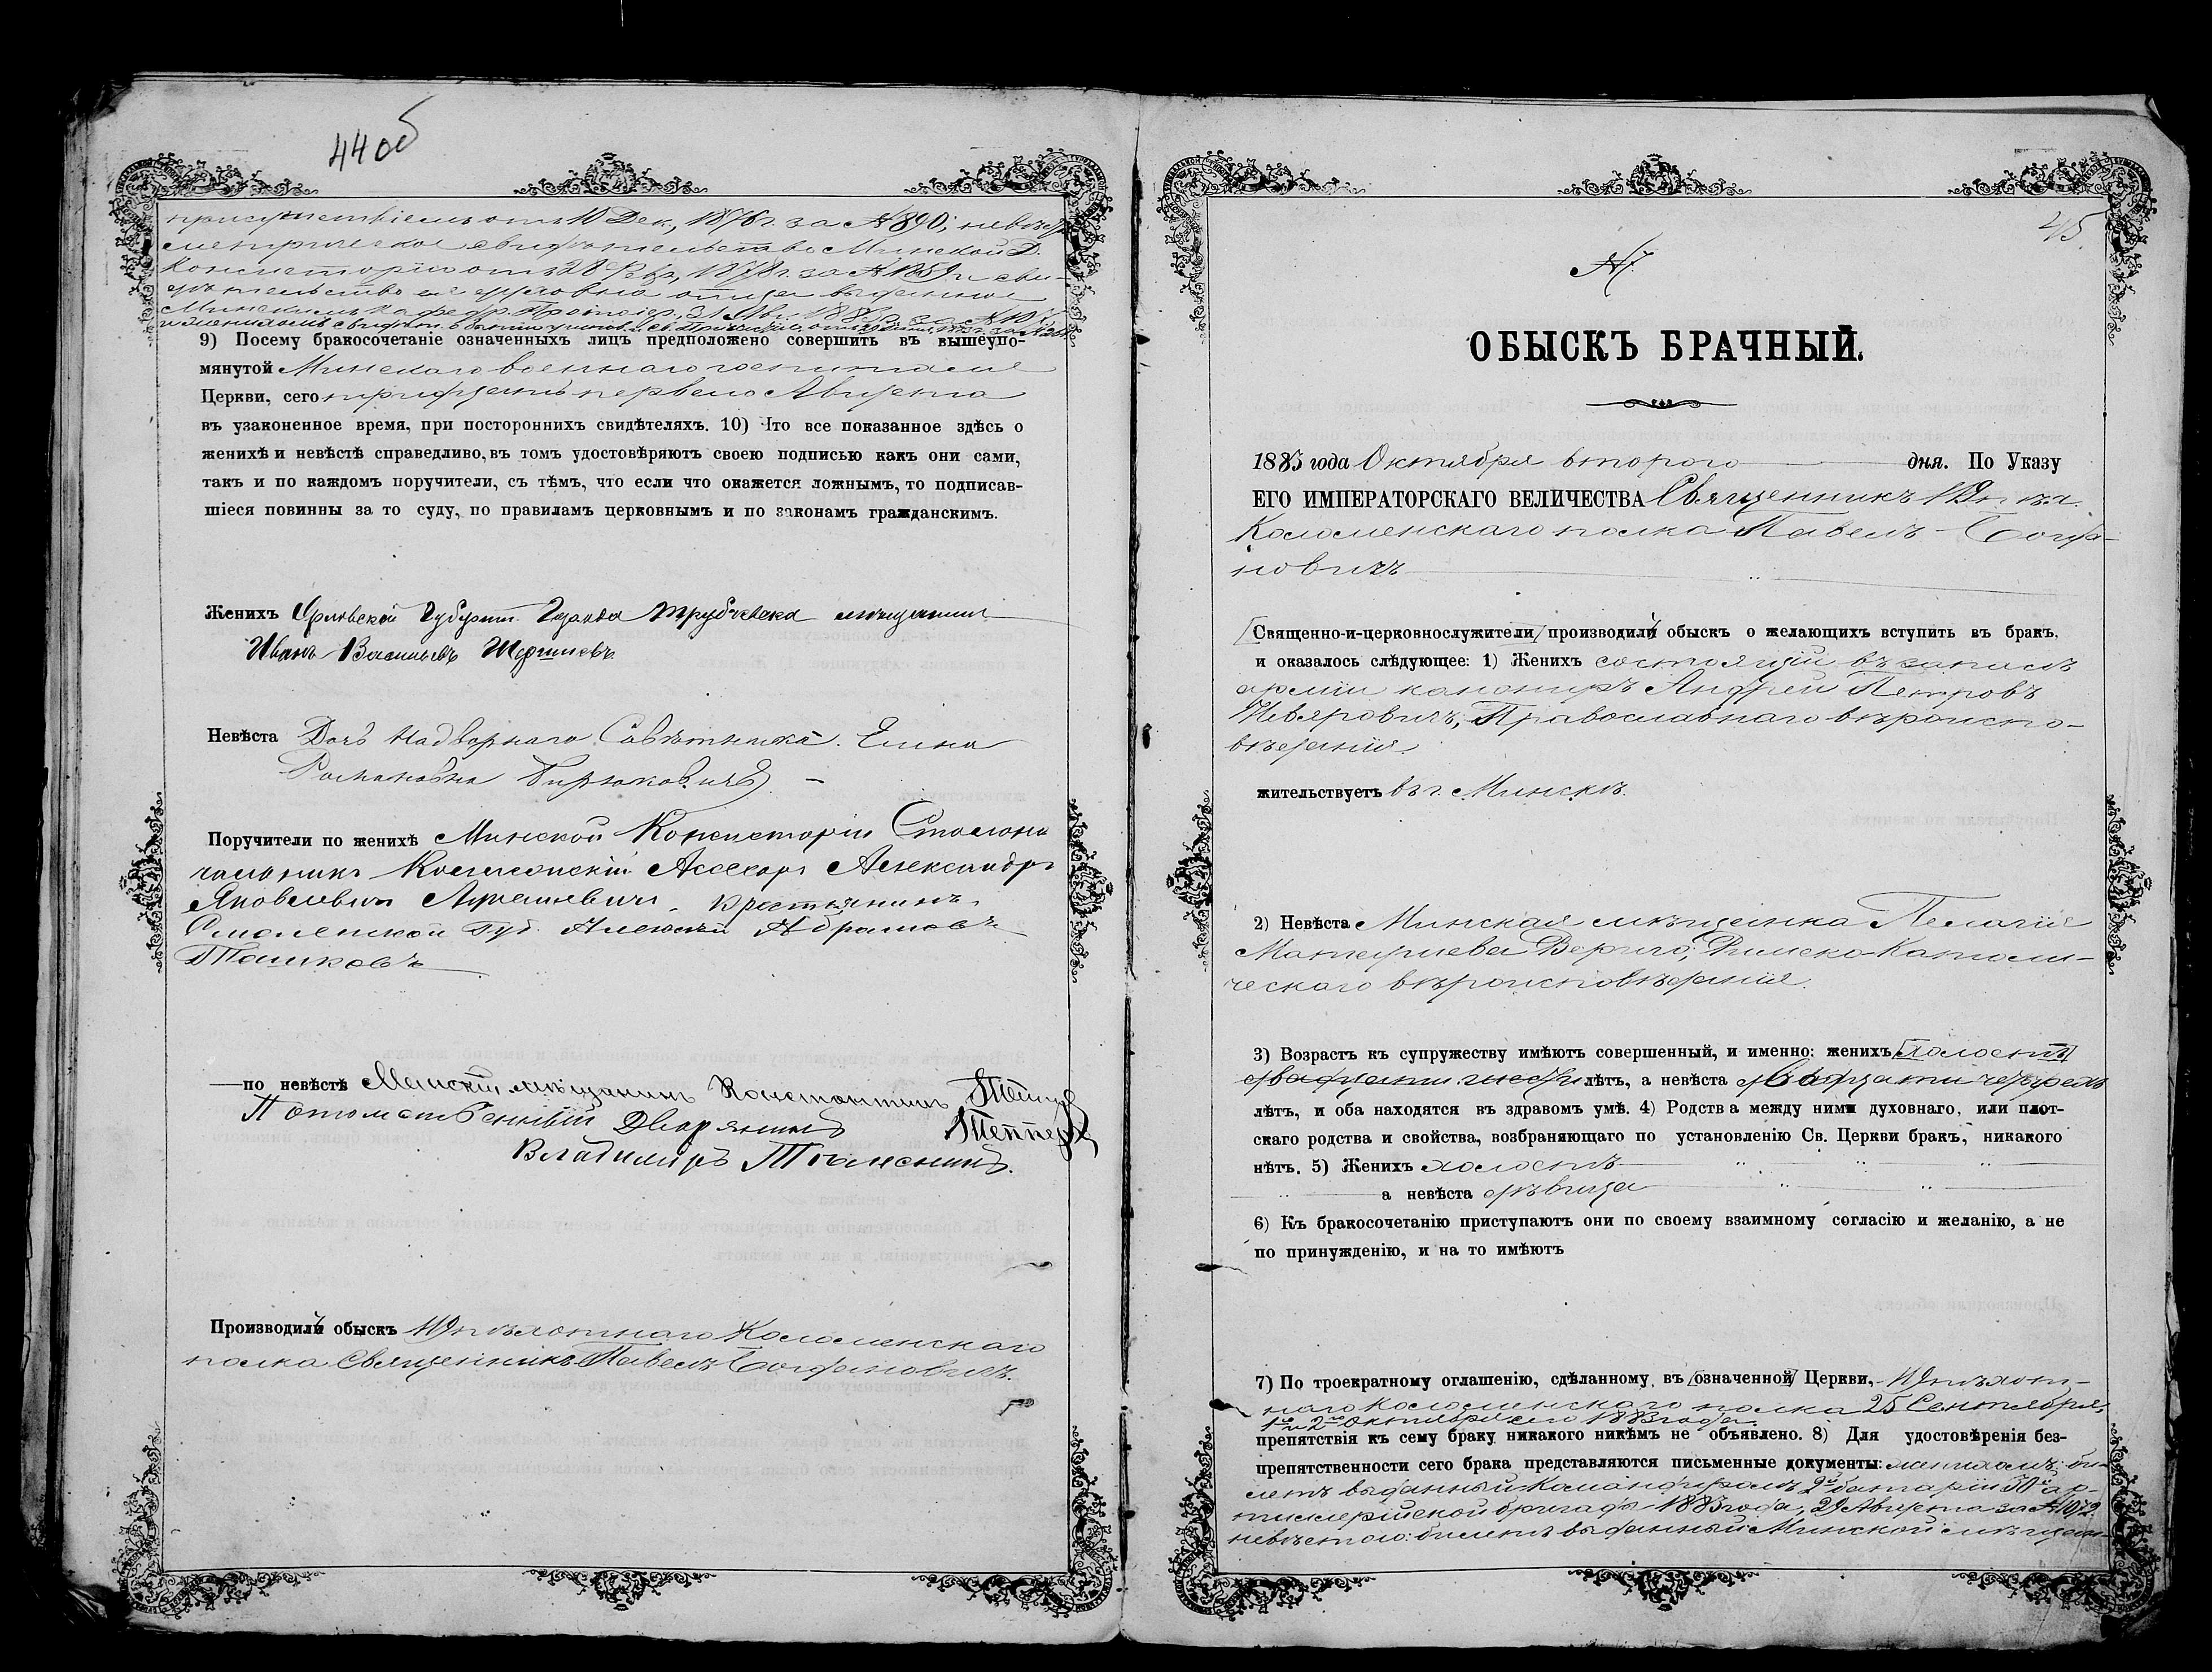 44 об
присутствіемъ отъ 10 Дек., 1876 г. за № 890; невѣсты
метрическое свидѣтельство Минской Д.
Консисторіи отъ 28 1878 г. за № 1859 и сви-
дѣтельство ея духовна отца выданное
Минскимъ кафедр. Протоіер. 31 Авг. 1883 г. за №
9) Посему бракосочетаніе означенныхъ лицъ предположено совершить въ вышеупо-
мянутой Минскаго военнаго госпиталя
Церкви, сего тридцать перваго Августа
въ узаконенное время, при постороннихъ свидѣтеляхъ. 10) Что все показанное здѣсь о
женихѣ и невѣстѣ справедливо, въ томъ удостовѣряютъ своею подписью какъ они сами,
такъ и по каждомъ поручители, съ тѣмъ, что если что окажется ложнымъ, то подписав-
шіеся повинны за то суду, по правиламъ церковнымъ и по законамъ гражданскимъ.
Женихъ Орловской Губерніи Города Трубчевска мѣщанинъ
Иванъ Васильевъ
Невѣста Дочь Надворнаго Совѣтника Елена
Романовна Бирюковичъ
Поручители по женихѣ Минской Консисторіи Столона
чальникъ Коллежскій Ассесоръ Александръ
Яковлевичъ крестьянинъ
Смоленской Губ. Алексѣй Абрамовъ
Ташковъ
по невѣстѣ Минскій мѣщанинъ Константинъ
Теппер
Потомственный Дворянинъ
Владиміръ
Производилъ обыскъ 119 пѣхотнаго Коломенскаго
полка Священникъ Павелъ Богдановичъ.
45.
№ 7.
ОБЫСКЪ БРАЧНЫЙ.
1883 года Октября второго дня. По Указу
ЕГО ИМПЕРАТОРСКАГО ВЕЛИЧЕСТВА Священникъ 119 п.
Коломенскаго полка Павелъ Богда-
новичъ
Священно-и-церковнослужители производилъ обыскъ о желающихъ вступить въ бракъ,
и оказалось слѣдующее: 1) Женихъ состоящій въ запасѣ
арміи канониръ Андрей Петровъ
Православнаго вѣроиспо-
вѣданія
жительствуетъ въ г. Минскѣ.
2) Невѣста Минская мѣщанка Пелагія
Матвѣева Верига, Римско-Католи-
ческаго вѣроисповѣданія.
3) Возрастъ къ супружеству имѣютъ совершенный, и именно: женихъ холостъ
двадцати шести лѣтъ, а невѣста двадцати четырехъ
лѣтъ, и оба находятся въ здравомъ умѣ. 4) Родства между ними духовнаго, или плот-
скаго родства и свойства, возбраняющаго по установленію Св. Церкви бракъ, никакого
нѣтъ. 5) Женихъ холостъ
а невѣста дѣвица
6) Къ бракосочетанію приступаютъ они по своему взаимному согласію и желанію, а не
по принужденію, и на то имѣютъ
7) По троекратному оглашенію, сдѣланному въ означенной Церкви, 119 пѣхот-
наго Коломенскаго полка 25 Сентября,
1го и 2го Октября сего 1883 года
препятствія къ сему браку никакого никѣмъ не объявлено. 8) Для удостовѣренія без-
препятственности сего брака представляются письменные документы: женихомъ: би-
летъ выданный Командиромъ 2й батареи 30й ар-
тиллерійской бригады 1883 года, 29 Августа за № 1072
невѣстою: билетъ выданный Минской мѣщан-